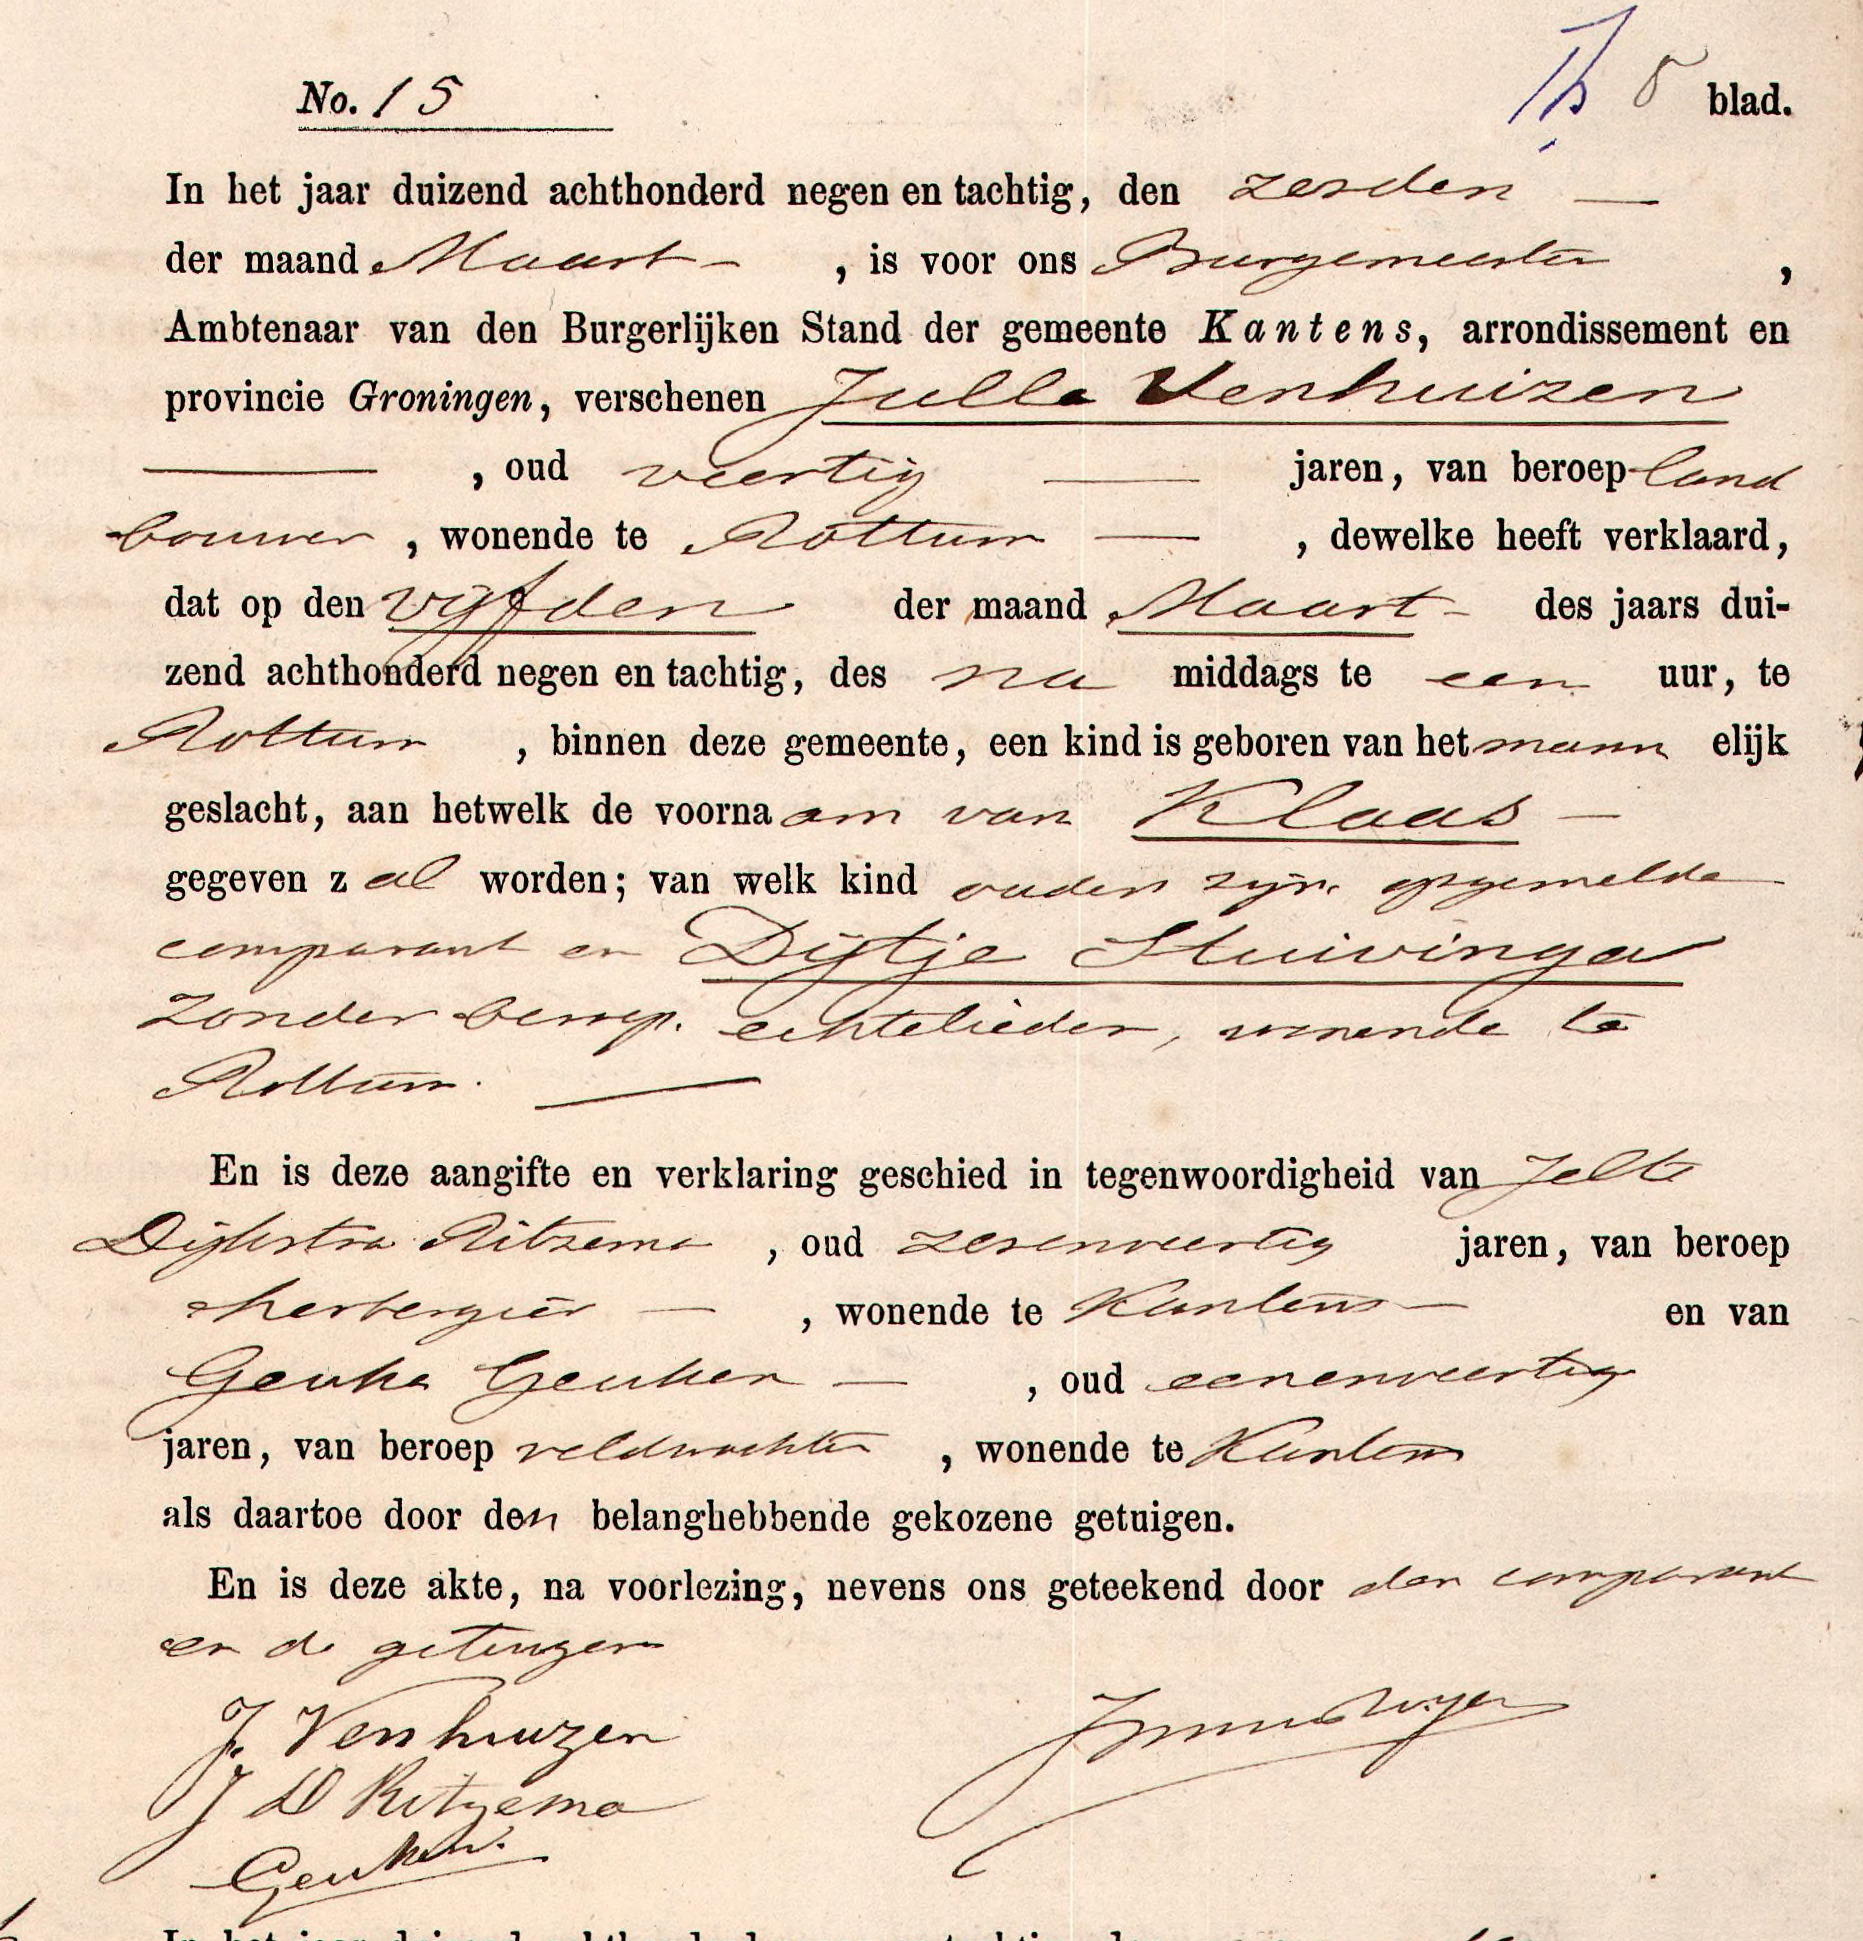 No. 15 8 blad.
In het jaar duizend achthonderd negen en tachtig, den zesden
der maand Maart, is voor ons Burgemeester,
Ambtenaar van den Burgerlijken Stand der gemeente Kantens, arrondissement en
provincie Groningen, verschenen Julle Venhuizen
, oud veertig jaren, van beroep land
bouwer, wonende te Rottum, dewelke heeft verklaard,
dat op den vijfden der maand Maart des jaars dui-
zend achthonderd negen en tachtig, des na middags te een uur, te
Rottum, binnen deze gemeente, een kind is geboren van het mann elijk
geslacht, aan hetwelk de voorna am van Klaas
gegeven z al worden; van welk kind ouders zijn opgemelde
comparant en Dijtje Stuivinga
zonder beroep. echtelieden, wonende te
Rottum.
En is deze aangifte en verklaring geschied in tegenwoordigheid van Jelte
Dijkstra Ritzema, oud zesenveertig jaren, van beroep
herbergier, wonende te Kantens en van
Geuke Geuken, oud eenenveertig
jaren, van beroep veldwachter, wonende te Kantens
als daartoe door den belanghebbende gekozene getuigen.
En is deze akte, na voorlezing, nevens ons geteekend door den comparant
en de getuigen
J. Venhuizen
J D Ritzema
Geuken.